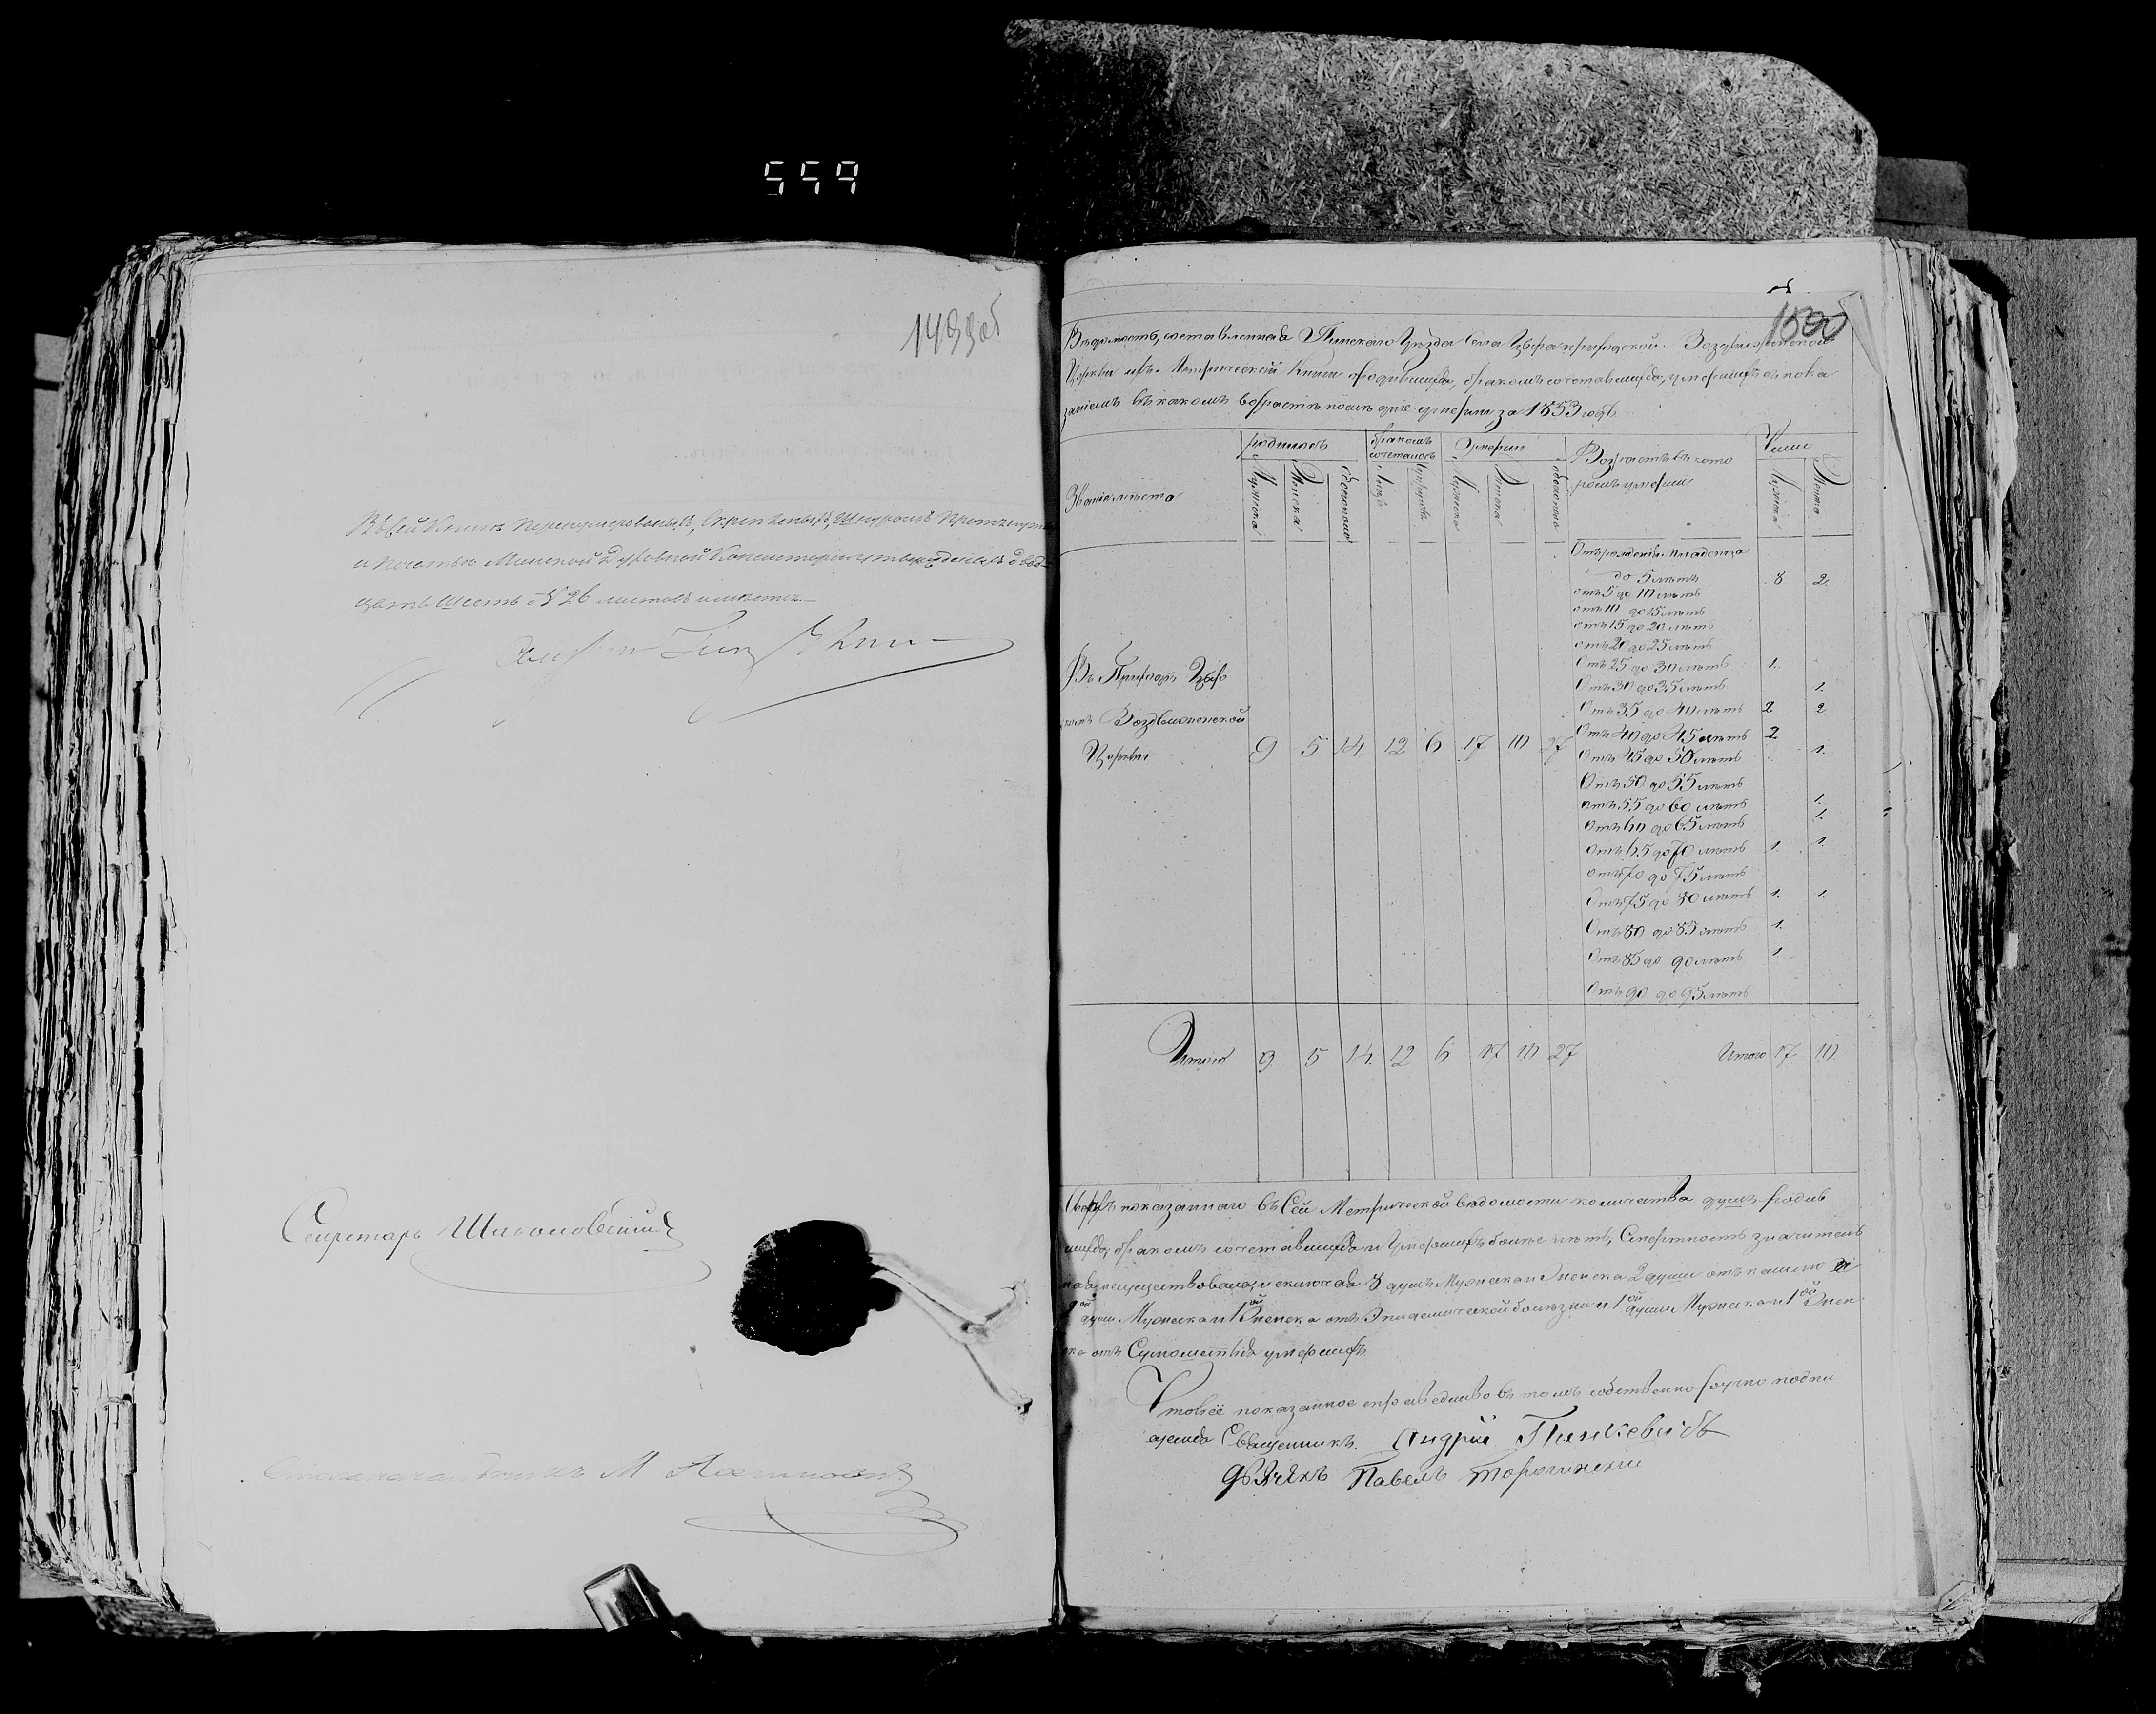 559
1499об
Въ сей Книгѣ перенумерованыхъ, скрепленыхъ, шнуромъ протянутыхъ
и печатью Минской Духовной Консисторіи утвержденыхъ двад-
цать шесть N 26 листовъ имѣется.
Секретарь
Столоначальникъ М
1500
Вѣдомость, составленная Пинскаго Уѣзда Села приходской Воздвиженской
Церкви изъ Метрической Книги о родившихся, бракомъ сочетавшихся, умершихъ съ пока
заніемъ въ какомъ возрастѣ кто умерли за 1853 годъ
родилось бракомъ сочеталось Умерли Возрастъ въ кото ромъ умерли Число
Званіе мѣста Мужеска Женска обоего пола Лицъ Мужеска Женска обоего Мужеска Женска
Отъ рожденія младенца
до 5 лѣтъ 8 2.
отъ 5 до 10 лѣтъ
отъ 10 до 15 лѣтъ
отъ 15 до 20 лѣтъ
отъ 20 до 25 лѣтъ
Отъ 25 до 30 лѣтъ 1.
Отъ 30 до 35 лѣтъ 1.
Отъ 35 до 40 лѣтъ 2 2.
Отъ 40 до 45 лѣтъ 2
Отъ 45 до 50 лѣтъ 1.
Отъ 50 до 55 лѣтъ
отъ 55 до 60 лѣтъ 1.
Отъ 60 до 65 лѣтъ 1.
Отъ 65 до 70 лѣтъ 1. 1.
отъ 70 до 75 лѣтъ
Отъ 75 до 80 лѣтъ 1. 1.
Отъ 80 до 85 лѣтъ 1.
Отъ 85 до 90 лѣтъ 1
Отъ 90 до 95 лѣтъ
Въ
Воздвиженской
Церкви 9 5 14. 12 6 17 10 27
Итого 9 5 14. 12 6 17 10 27 Итого 17 10.
Сверхъ показаннаго въ Сей Метрической вѣдомости количества душъ родив
шихся, бракомъ сочетавшихся и Умершихъ болѣе нѣтъ, Смертность значитель
ная не существовала, исключая 8 душъ Мужеска и Женска 2 души отъ кашлю и
души Мужеска и 1ой Женска отъ Эпидемической болѣзни и 1ой души Мужеска и 1ой Жен
ска отъ Сумошетвія умершихъ.
Что все показанное справедливо въ томъ собственно ручно подпи
суемся Священникъ Андрій Пинкевичъ
дьячекъ Павелъ